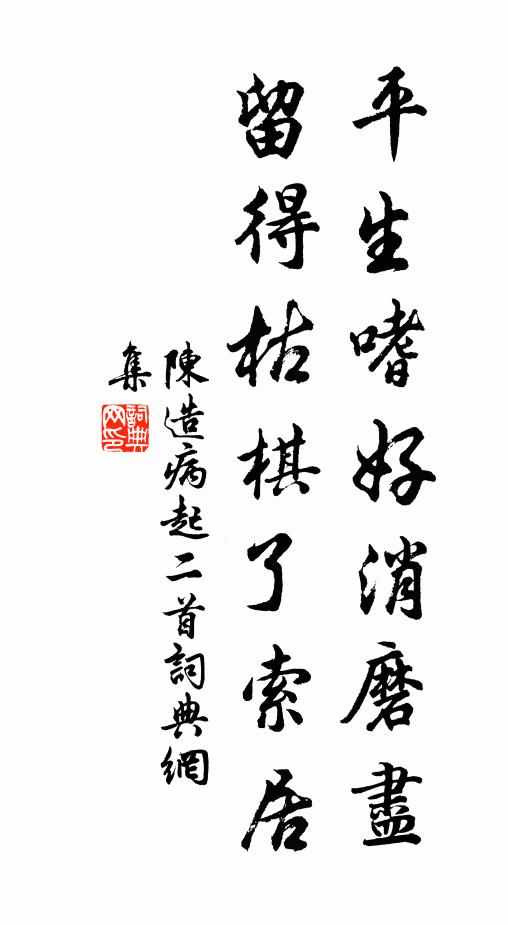 平生嗜好消磨盡
留得枯棋了索居
陳造病起二首詞典網
集
詞典
网印